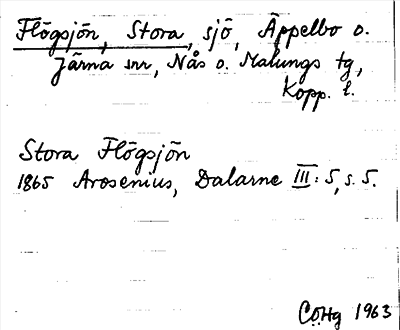 Flögsjön, Stora, sjö, Äppelbo o.
Järna snr, Nås o. Malungs tg,
Kopp. l.
Stora Flögsjön
1865 Arosenius, Dalarne III: 5, s. 5.
CÖHg 1963